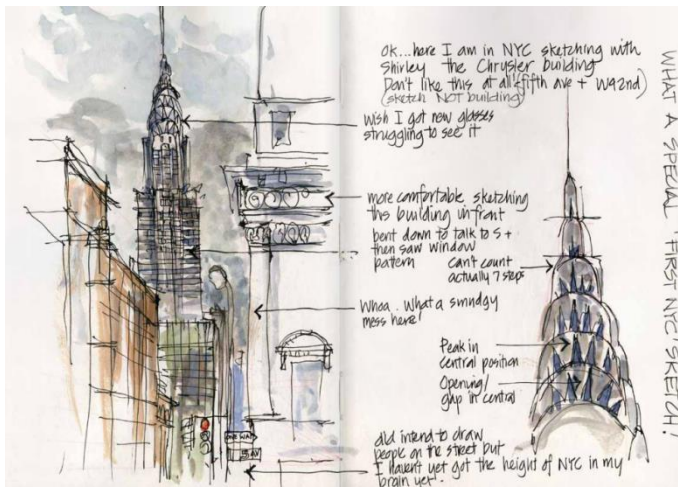 OK...here I am in NYC sketching with
Shirley the Chrysler building
Don't like this at all (fifth ave + W42nd)
(sketch NOT building)
Wish I got new glasses
struggling to see it
more comfortable sketching
this building in front
bent down to talk to S +
then saw window
pattern
can't count
actually 7 steps
Whoa. What a smudgy
mess here!
Peak in
central position
Opening/
gap in central
did intend to draw
people on the street but
I haven't yet got the height of NYC in my
brain yet!
WHAT A SPECIAL 'FIRST NYC' SKETCH!
ONE WAY